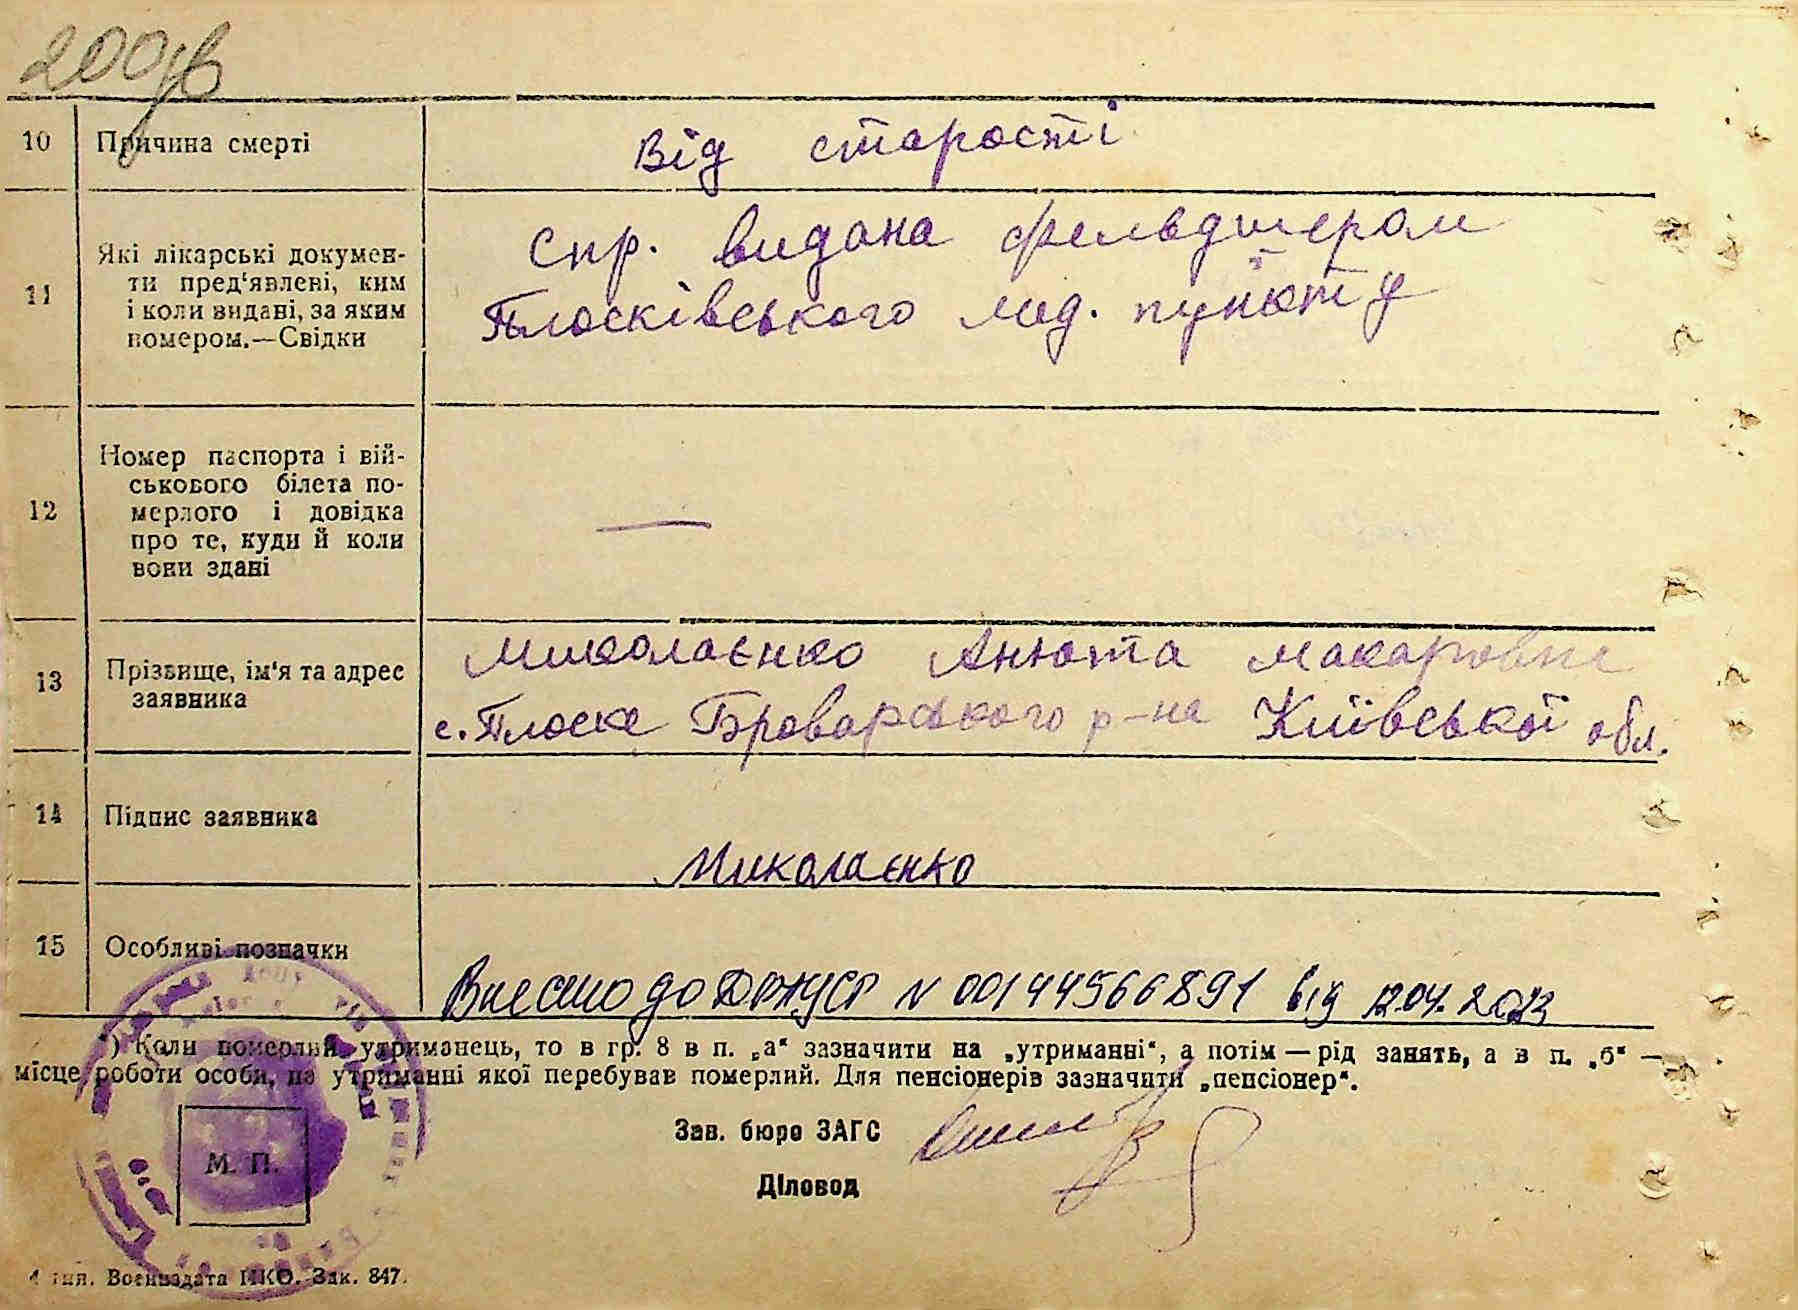 200
10 Причина смерті Від старості
11 Які лікарські докумен-
ти пред'явлені, ким
і коли видані, за яким
номером.—Свідки
Спр. видана фельдшером
Плосківського мед. пункту
12 Номер паспорта і вій-
ськового білета по-
мерлого і довідка
про те, куди й коли
вони здані
—
13 Прізвище, ім'я та адрес
заявника
Миколаєнко Анюта Макаровна
с. Плоске Броварського р-на Київської обл.
14 Підпис заявника
Миколаєнко
15 Особливі позначки
Внесено до ДРАЦСГ N 00144566891 від 12.04.2023
*) Коли померлий утриманець, то в гр. 8 в п. „а“ зазначити на „утриманні“, а потім — рід занять, а в п. „б“ —
місце роботи особи, на утриманні якої перебував померлий. Для пенсіонерів зазначити „пенсіонер“.
Зав. бюро ЗАГС
М. П.
Діловод
тип. Воениздата НКО. Зак. 847.